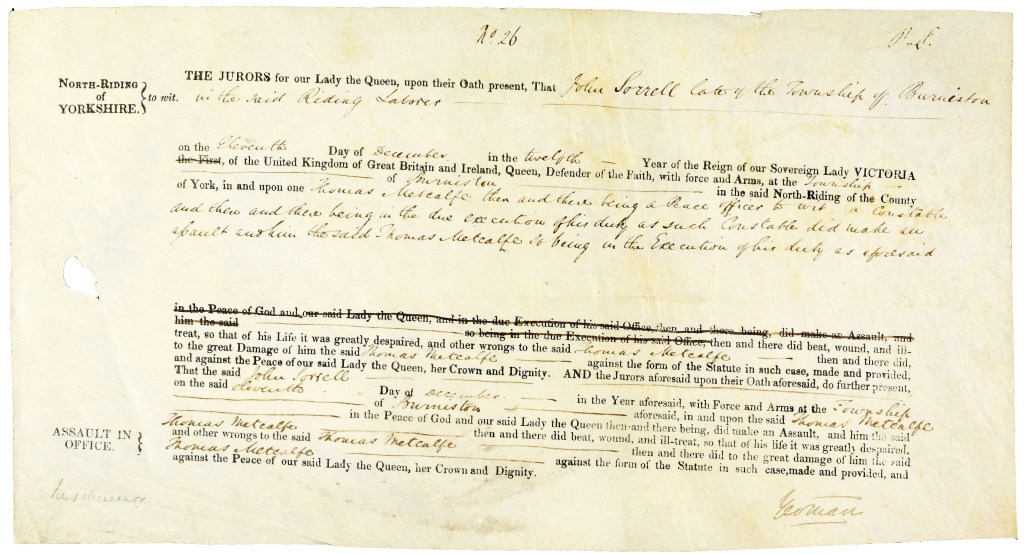 No. 26
NORTH-RIDING of YORKSHIRE. } to wit.
THE JURORS for our Lady the Queen, upon their Oath present, That John Sorrell late of the Township of Burniston
in the said Riding Laborer
on the Eleventh Day of December in the twelfth Year of the Reign of our Sovereign Lady VICTORIA
the First, of the United Kingdom of Great Britain and Ireland, Queen, Defender of the Faith, with force and Arms, at the Township
of Burniston in the said North-Riding of the County
of York, in and upon one Thomas Metcalfe then and there being a Peace officer to wit a Constable
and then and there being in the due execution of his duty as such Constable did make an
assault and him the said Thomas Metcalfe so being in the Execution of his duty as aforesaid
in the Peace of God and our said Lady the Queen, and in the due Execution of his said Office, then and there being, did make an Assault, and
him the said so being in the due Execution of his said Office, then and there did beat, wound, and ill-
treat, so that of his Life it was greatly despaired, and other wrongs to the said Thomas Metcalfe then and there did,
to the great Damage of him the said Thomas Metcalfe against the form of the Statute in such case, made and provided,
and against the Peace of our said Lady the Queen, her Crown and Dignity. AND the Jurors aforesaid upon their Oath aforesaid, do further present,
That the said John Sorrell
on the said eleventh Day of December in the Year aforesaid, with Force and Arms at the Township
of Burniston aforesaid, in and upon the said Thomas Metcalfe
in the Peace of God and our said Lady the Queen then and there being, did make an Assault, and him the said
Thomas Metcalfe then and there did beat, wound, and ill-treat, so that of his life it was greatly despaired,
and other wrongs to the said Thomas Metcalfe then and there did to the great damage of him the said
Thomas Metcalfe against the form of the Statute in such case, made and provided, and
against the Peace of our said Lady the Queen, her Crown and Dignity.
ASSAULT IN OFFICE. }
Yeoman